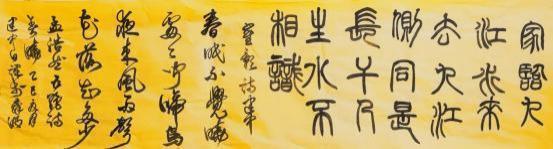 家臨九
江水來
去九江
側同是
長干人
生小不
相識
崔顥詩一首
春眠不覺曉
處々聞啼鳥
夜來風雨聲
花落知多少
孟浩然五絕詩
春曉 乙巳五月